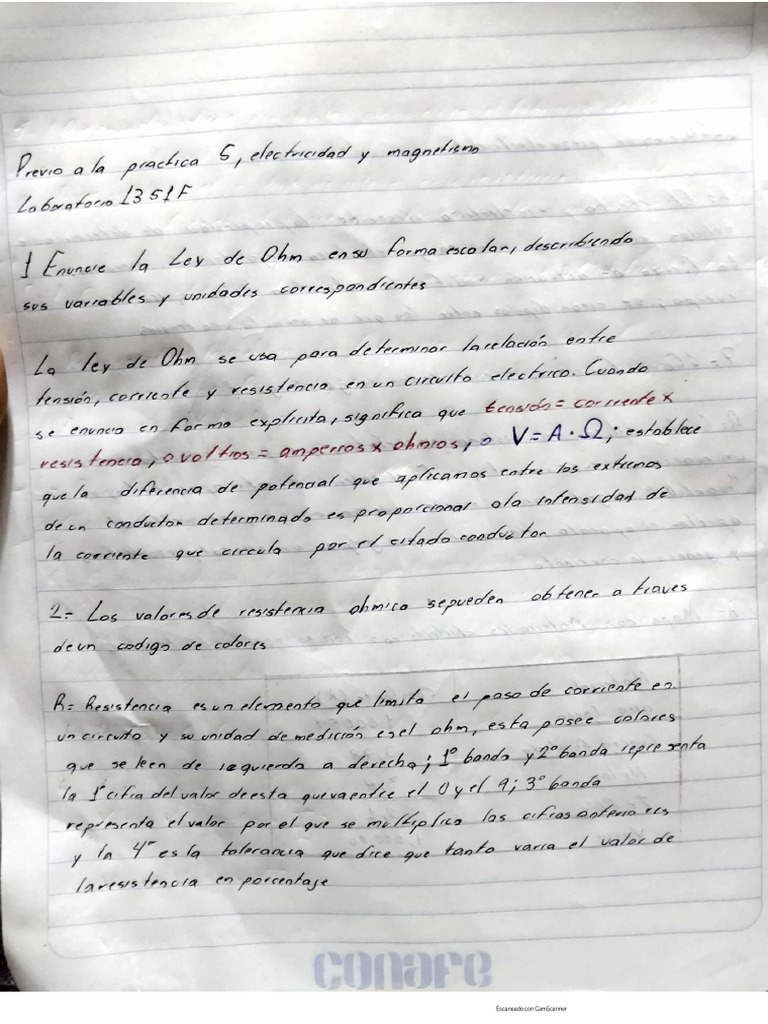 Previo a la practica 5, electricidad y magnetismo
Laboratorio 1351F
1 Enuncie la Ley de Ohm en su forma escalar, describiendo
sus variables y unidades correspondientes
La ley de Ohm se usa para determinar la relación entre
tensión, corriente y resistencia en un circuito electrico. Cuando
se enuncia en forma explicita, significa que tensión = corriente x
resistencia, o voltios = amperios x ohmios, o V = A · Ω; establece
que la diferencia de potencial que aplicamos entre los extremos
de un conductor determinado es proporcional a la intensidad de
la corriente que circula por el citado conductor
2= Los valores de resistencia ohmica se pueden obtener a traves
de un codigo de colores
R= Resistencia es un elemento que limita el paso de corriente en
un circuito y su unidad de medición es el ohm, esta posee colores
que se leen de izquierda a derecha; 1º banda y 2º banda representa
la 1º cifra del valor de esta que va entre el 0 y el 9; 3º banda
representa el valor por el que se multiplica las cifras anteriores
y la 4º es la tolerancia que dice que tanto varia el valor de
la resistencia en porcentaje
conafe
Escaneado con CamScanner